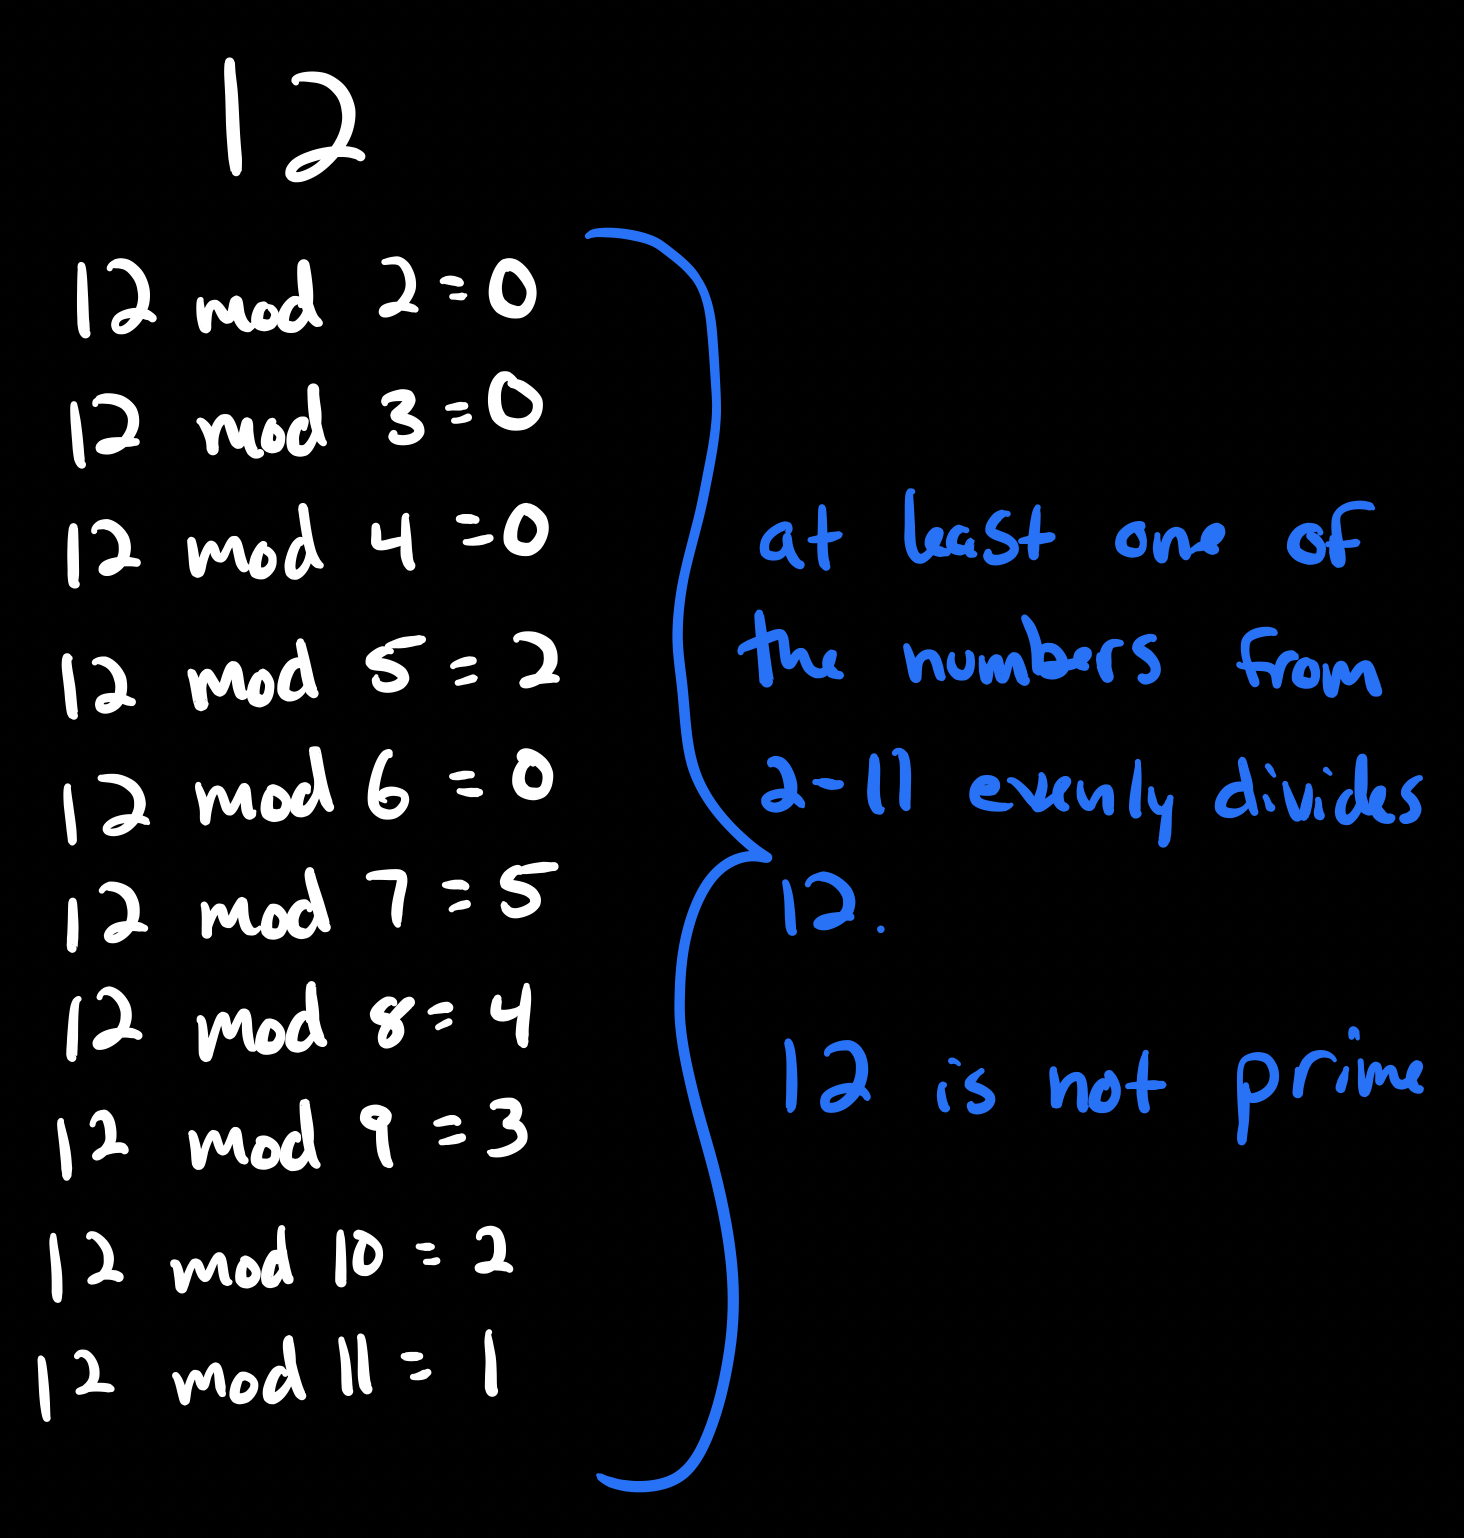 12
12 mod 2 = 0
12 mod 3 = 0
12 mod 4 = 0
12 mod 5 = 2
12 mod 6 = 0
12 mod 7 = 5
12 mod 8 = 4
12 mod 9 = 3
12 mod 10 = 2
12 mod 11 = 1
at least one of
the numbers from
2-11 evenly divides
12.
12 is not prime